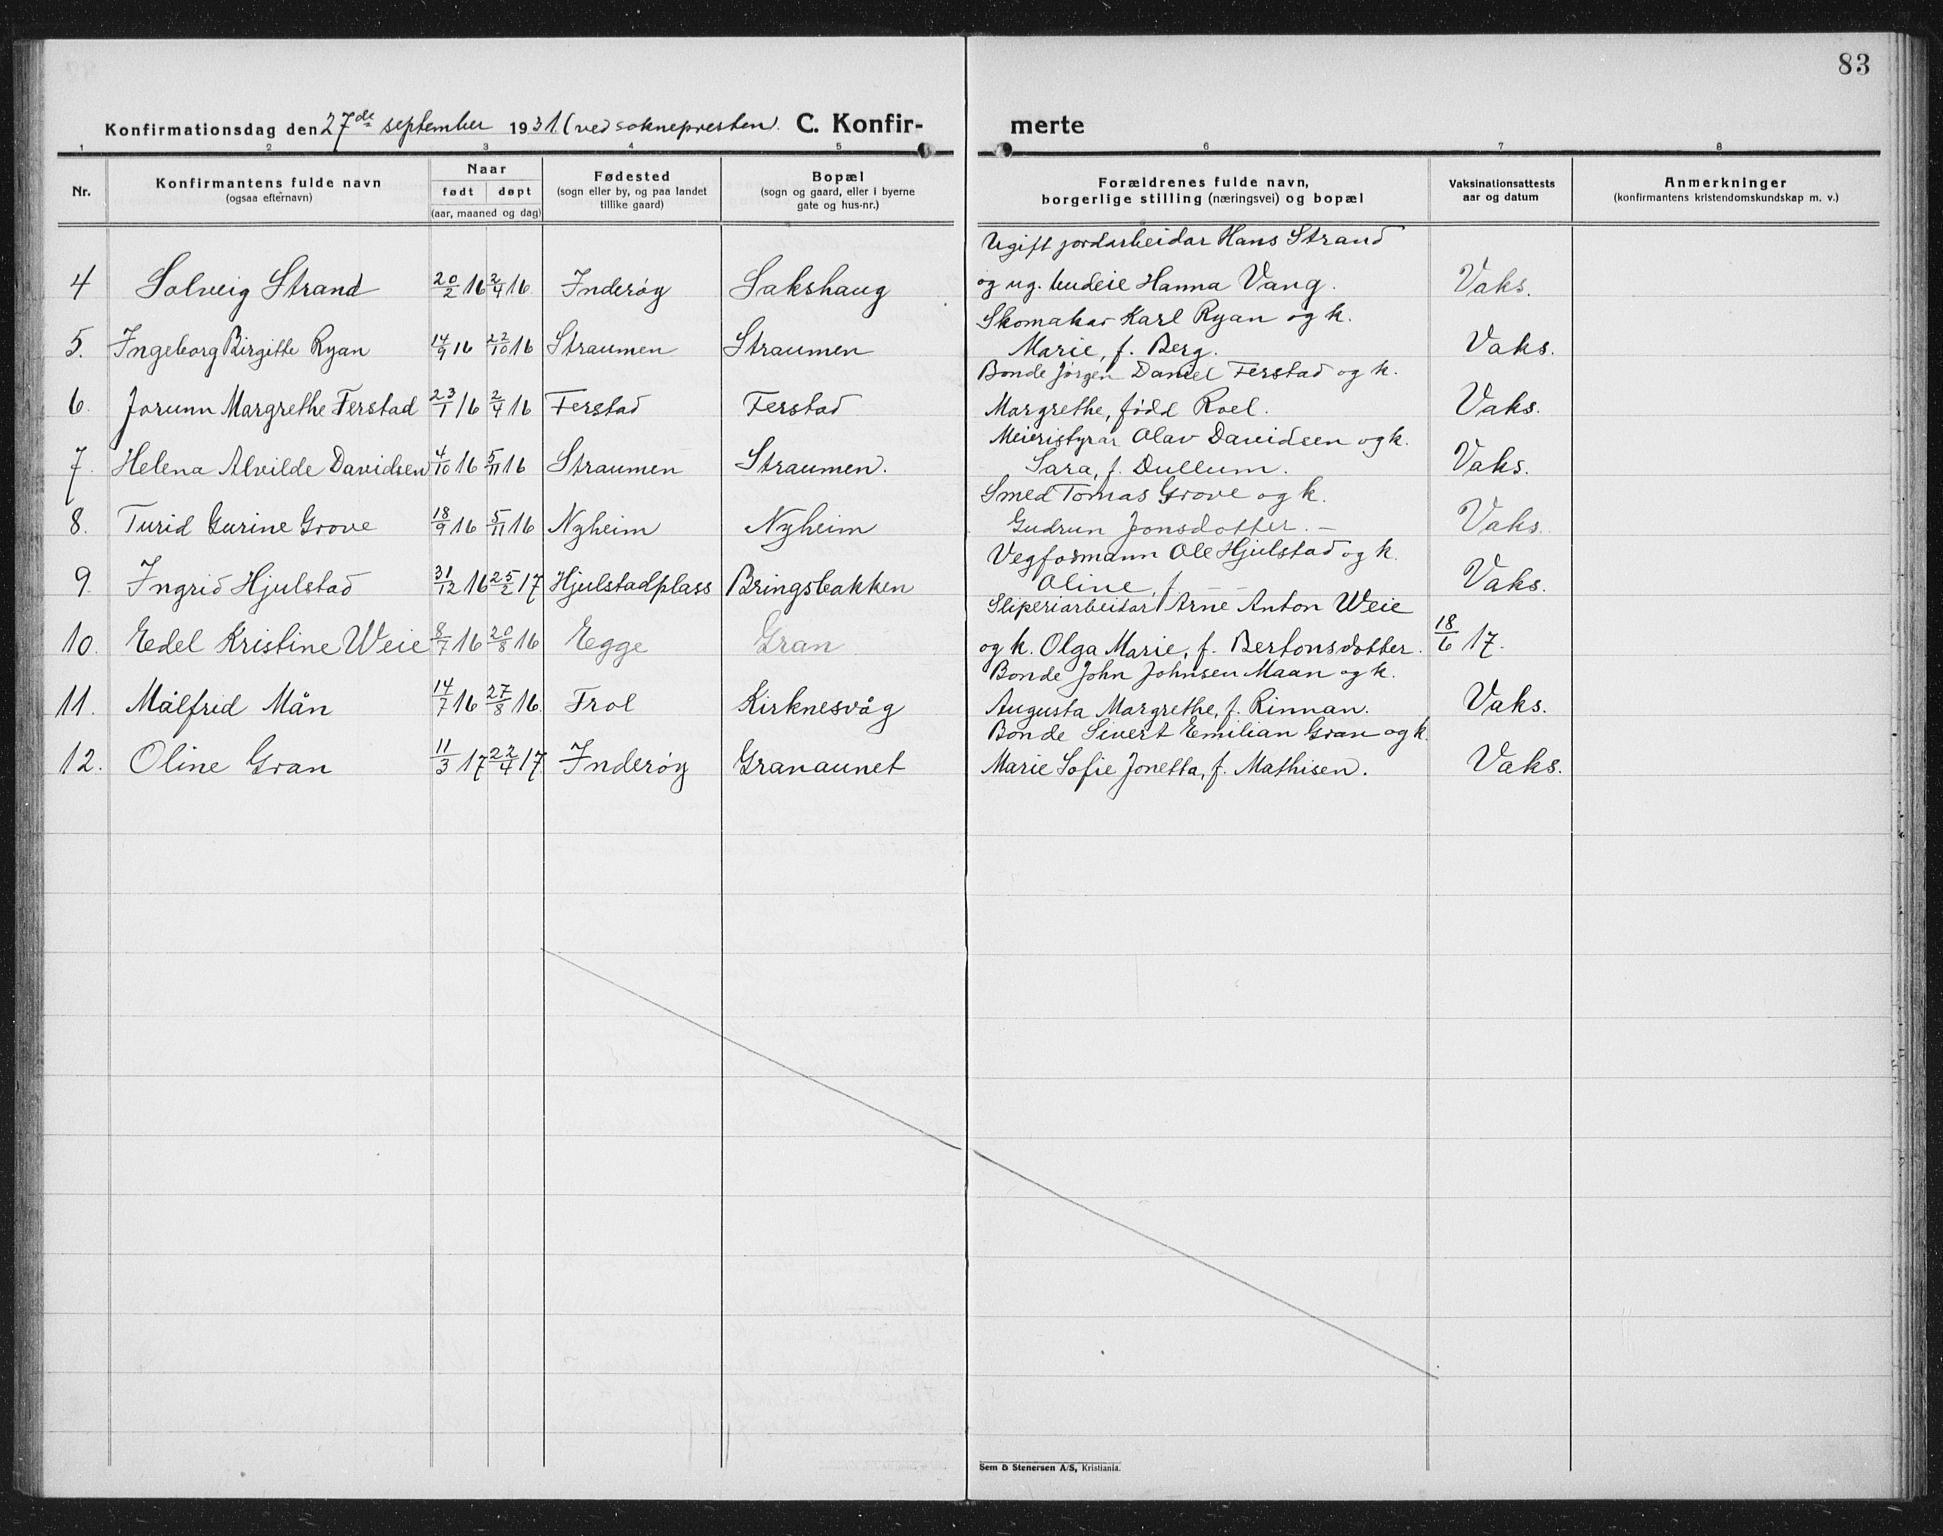 83
Konfirmationsdag den 27de september 1931 (ved soknepresten). C. Konfir- merte
1 2 3 4 5 6 7 8
Nr. Konfirmantens fulde navn (ogsaa efternavn) Naar født døpt (aar, maaned og dag) Fødested (sogn eller by, og paa landet tillike gaard) Bopæl (sogn og gaard, eller i byerne gate og hus-nr.) Forældrenes fulde navn, borgerlige stilling (næringsvei) og bopæl Vaksinationsattests aar og datum Anmerkninger (konfirmantens kristendomskundskap m. v.)
Ugift jordarbeidar Hans Strand
4 Solveig Strand 20/2 16 2/4 16 Inderøy Sakshaug og ug. budeie Hanna Vang. Vaks.
Skomakar Karl Ryan og k.
5. Ingeborg Birgitte Ryan 14/9 16 22/10 16 Straumen Straumen Marie, f. Berg. Vaks.
Bonde Jørgen Daniel Ferstad og k.
6. Jorunn Margrethe Ferstad 23/1 16 2/4 16 Ferstad Ferstad Margrethe, född Roel. Vaks.
Meieristyrar Olav Davidsen og k.
7. Helena Alvilde Davidsen 4/10 16 5/11 16 Straumen Straumen. Sara, f. Dullum. Vaks.
Smed Tomas Grove og k.
8. Turid Gurine Grove 18/9 16 5/11 16 Nyheim Nyheim Gudrun Jonsdotter. — Vaks.
Vegformann Ole Hjulstad og k.
9. Ingrid Hjulstad 31/12 16 25/2 17 Hjulstadplass Bringsbakken Oline, f. — — Vaks.
Sliperiarbeidar Arne Anton Weie
10. Edel Kristine Weie 8/7 16 20/8 16 Egge Gran og k. Olga Marie, f. Bertonsdotter. 18/6 17.
Bonde John Johnsen Maan og k.
11. Målfrid Mån 14/7 16 27/8 16. Frol Kirknesvåg Augusta Margrethe, f. Rinnan. Vaks.
Bonde Sivert Emilian Gran og k.
12. Oline Gran 11/3 17 22/4 17 Inderøy Granaunet Marie Sofie Jonetta, f. Mathisen. Vaks.
Sem & Stenersen A/S, Kristiania.